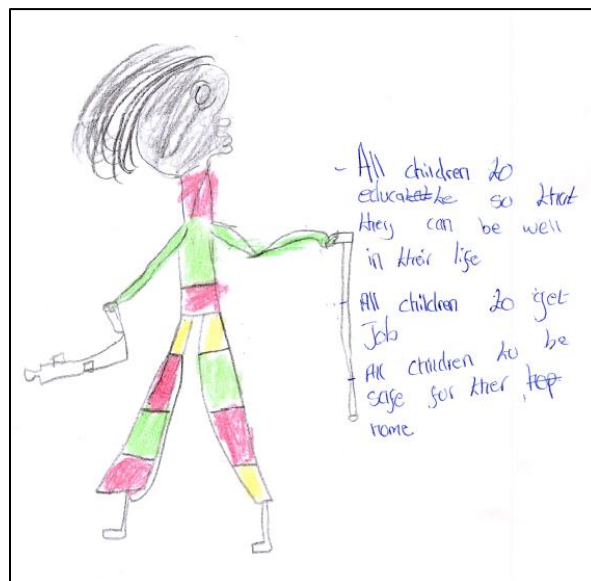 - All children to
educate so that
they can be well
in their life
- All children to get
Job
- All children to be
safe for ther
home